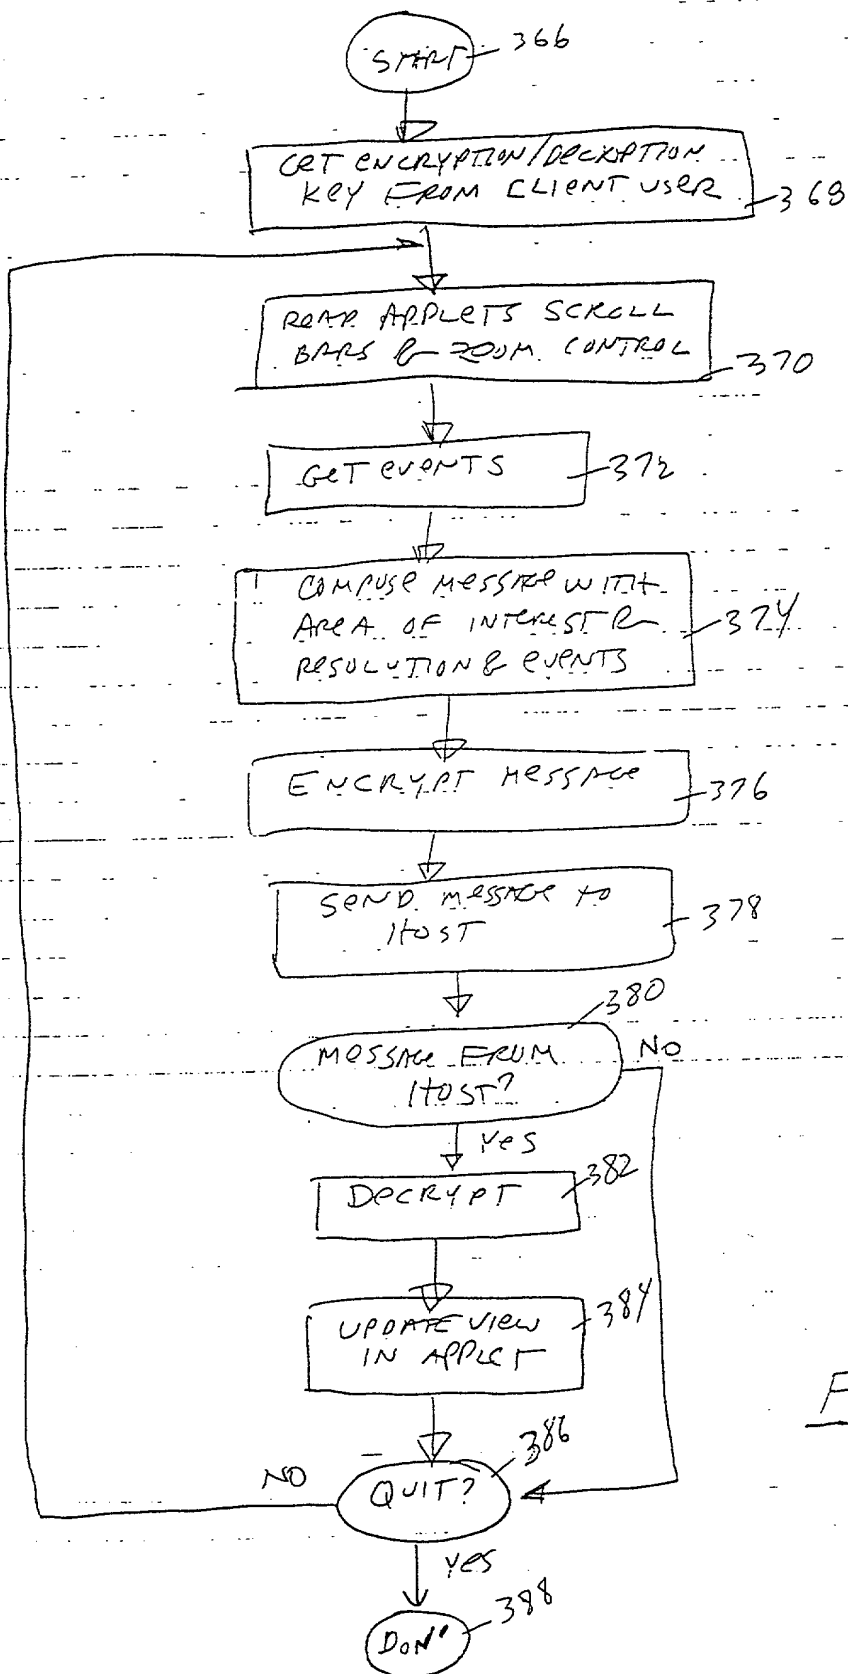 START 366
GET ENCRYPTION/DECRIPTION
KEY FROM CLIENT USER 368
READ APPLETS SCROLL
BARS & ZOOM CONTROL 370
GET EVENTS 372
COMPOSE MESSAGE WITH
AREA OF INTEREST &
RESOLUTION & EVENTS 374
ENCRYPT MESSAGE 376
SEND MESSAGE TO
HOST 378
380
MESSAGE FROM
HOST?
NO
Yes
DECRYPT 382
UPDATE VIEW
IN APPLET 384
F
386
NO
QUIT?
yes
388
DON'